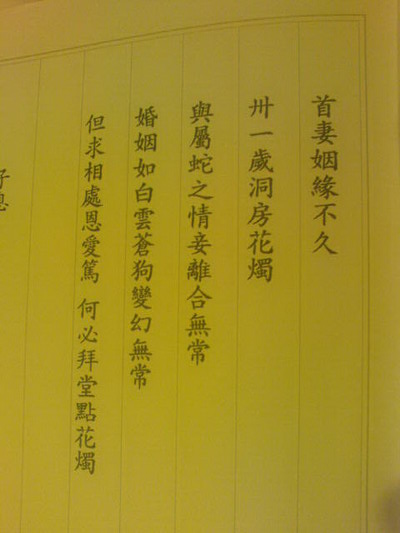 首妻姻緣不久
卅一歲洞房花燭
與屬蛇之情妾離合無常
婚姻如白雲蒼狗變幻無常
但求相處恩愛篤 何必拜堂點花燭